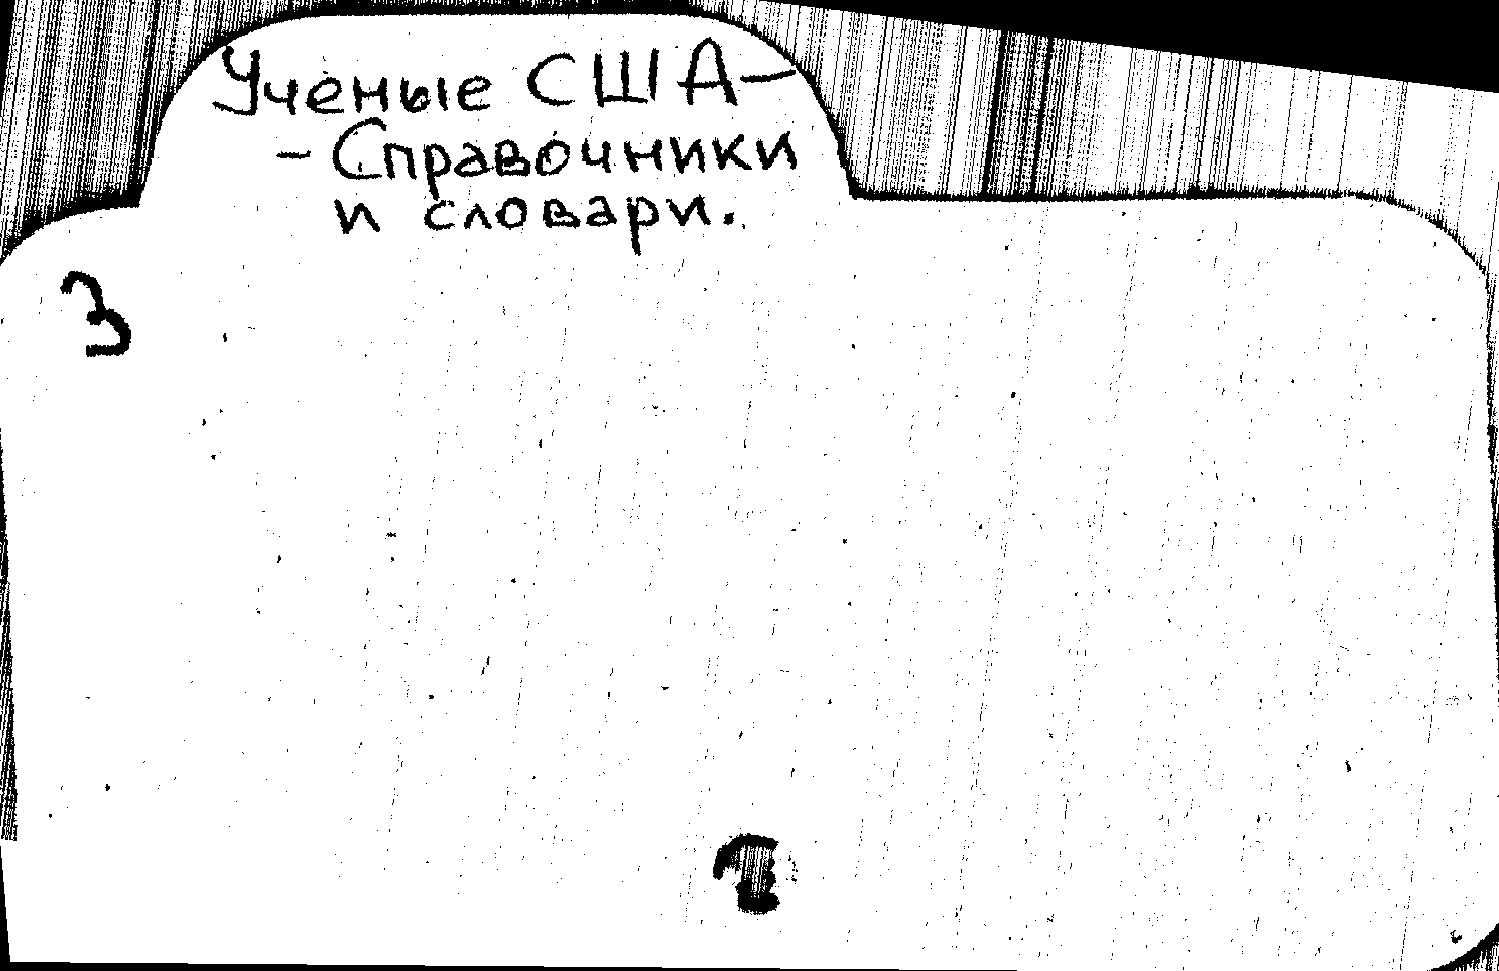 Ученые США-
- Справочники
и словари.
3